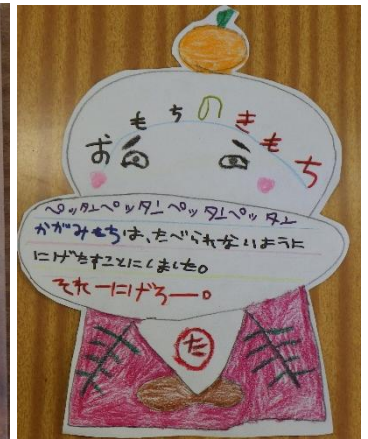 おもちのきもち
ペッタンペッタンペッタンペッタン
かがみもちは、たべられないように
にげだすことにしました。
それーにげろー。
た